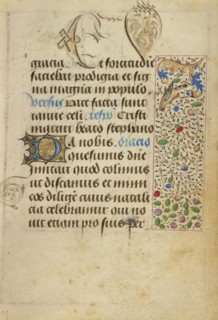 gracia. Et fortitudine
faciebat prodigia et sig
na magna in populo.
Versus Patet facta sunt
ianue celi. Christi
martiri beato stephano
Da nobis. Oracio
quesumus dne
imitari quod colimus
ut discamus et inimi
cos diligere cuius natali
cia celebramus qui no
uit etiam pro suis per